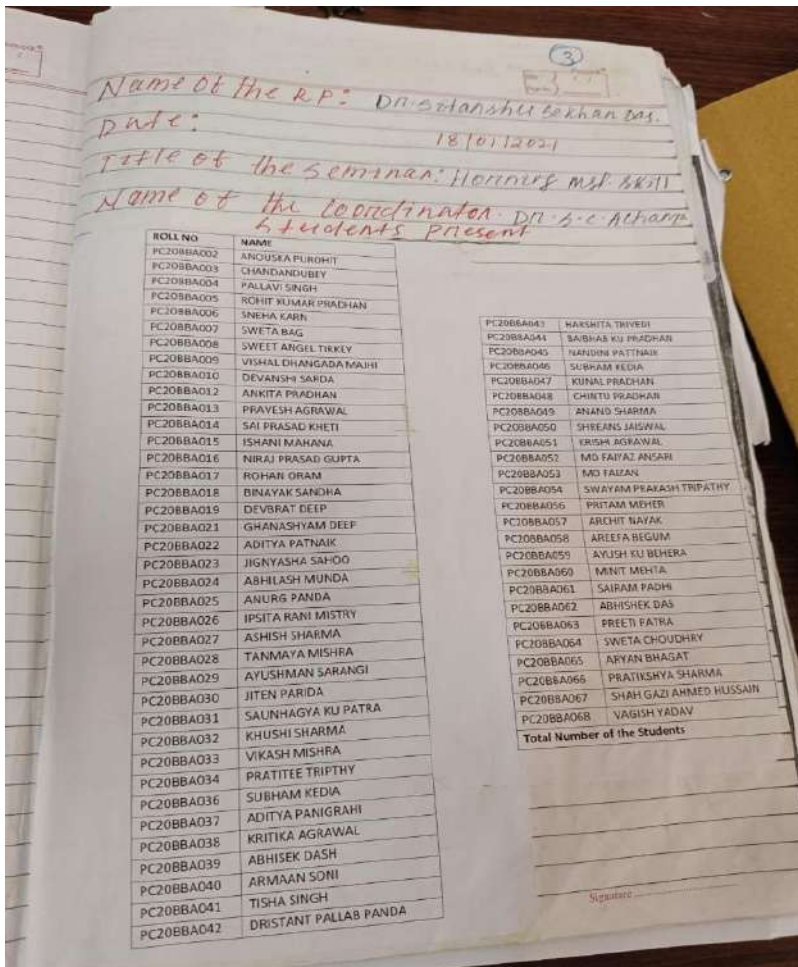 3
Name of the RP: Dr. Sitanshu Sekhar Das.
Date:
18/01/2021
Title of the Seminar: Horning Mgt. Skill
Name of the Coordinator. Dr. S.C. Acharya
Students Present
ROLL NO NAME
PC20BBA002 ANOUSKA PUROHIT
PC20BBA003 CHANDANDUBEY
PC20BBA004 PALLAVI SINGH
PC20BBA005 ROHIT KUMAR PRADHAN
PC20BBA006 SNEHA KARN
PC20BBA007 SWETA BAG
PC20BBA008 SWEET ANGEL TIRKEY
PC20BBA009 VISHAL DHANGADA MAJHI
PC20BBA010 DEVANSHI SARDA
PC20BBA012 ANKITA PRADHAN
PC20BBA013 PRAYESH AGRAWAL
PC20BBA014 SAI PRASAD KHETI
PC20BBA015 ISHANI MAHANA
PC20BBA016 NIRAJ PRASAD GUPTA
PC20BBA017 ROHAN ORAM
PC20BBA018 BINAYAK SANDHA
PC20BBA019 DEVBRAT DEEP
PC20BBA021 GHANASHYAM DEEP
PC20BBA022 ADITYA PATNAIK
PC20BBA023 JIGNYASHA SAHOO
PC20BBA024 ABHILASH MUNDA
PC20BBA025 ANURG PANDA
PC20BBA026 IPSITA RANI MISTRY
PC20BBA027 ASHISH SHARMA
PC20BBA028 TANMAYA MISHRA
PC20BBA029 AYUSHMAN SARANGI
PC20BBA030 JITEN PARIDA
PC20BBA031 SAUNHAGYA KU PATRA
PC20BBA032 KHUSHI SHARMA
PC20BBA033 VIKASH MISHRA
PC20BBA034 PRATITEE TRIPTHY
PC20BBA036 SUBHAM KEDIA
PC20BBA037 ADITYA PANIGRAHI
PC20BBA038 KRITIKA AGRAWAL
PC20BBA039 ABHISEK DASH
PC20BBA040 ARMAAN SONI
PC20BBA041 TISHA SINGH
PC20BBA042 DRISTANT PALLAB PANDA
PC20BBA043 HARSHITA TRIVEDI
PC20BBA044 BAIBHAB KU PRADHAN
PC20BBA045 NANDINI PATTNAIK
PC20BBA046 SUBHAM KEDIA
PC20BBA047 KUNAL PRADHAN
PC20BBA048 CHINTU PRADHAN
PC20BBA049 ANAND SHARMA
PC20BBA050 SHREANS JAISWAL
PC20BBA051 KRISHI AGRAWAL
PC20BBA052 MD FAIYAZ ANSARI
PC20BBA053 MD FAIZAN
PC20BBA054 SWAYAM PRAKASH TRIPATHY
PC20BBA056 PRITAM MEHER
PC20BBA057 ARCHIT NAYAK
PC20BBA058 AREEFA BEGUM
PC20BBA059 AYUSH KU BEHERA
PC20BBA060 MINIT MEHTA
PC20BBA061 SAIRAM PADHI
PC20BBA062 ABHISHEK DAS
PC20BBA063 PREETI PATRA
PC20BBA064 SWETA CHOUDHRY
PC20BBA065 ARYAN BHAGAT
PC20BBA066 PRATIKSHYA SHARMA
PC20BBA067 SHAH GAZI AHMED HUSSAIN
PC20BBA068 VAGISH YADAV
Total Number of the Students
Signature